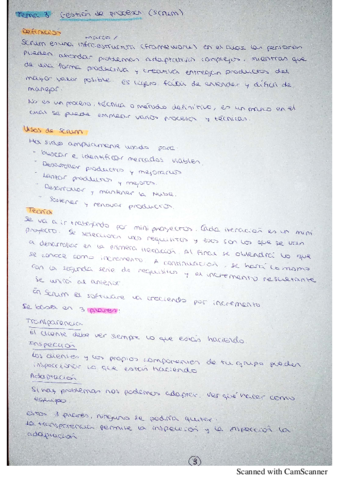 Tema 5 Gestión de procesos (Scrum)
Definición
marco /
Scrum es una infraestructura (framework) en el cual las personas
pueden abordar problemas adaptativos complejos, mientras que
de una forma productiva y creativa entregan productos del
mayor valor posible. Es ligero fácil de entender y difícil de
manejar
No es un proceso, técnica o método definitivo, es un marco en el
cual se puede emplear varios procesos y técnicas.
Usos de Scrum
Ha sido ampliamente usado para
- Buscar e identificar mercados viables.
- Desarrollar productos y mejorarlos
- Lanzar productos y mejoras.
- Desarrollar y mantener la nube.
- Sostener y renovar productos
Teoría
Se va a ir trabajando por mini proyectos. Cada iteración es un mini
proyecto. Se seleccionan unos requisitos y esos son los que se van
a desarrollar en la primera iteración. Al final se obtendrá lo que
se conoce como incremento. A continuación, se haría lo mismo
con la segunda serie de requisitos y el incremento resultante
se uniría al anterior
En Scrum el software va creciendo por incremento
Se basa en 3 pilares:
Transparencia
El cliente debe ver siempre lo que estás haciendo
Inspección
Los clientes y los propios componentes de tu equipo pueden
inspeccionar lo que están haciendo
Adaptación
Si hay problemas nos podemos adaptar. Ver qué hacer como
equipo
Estos 3 pilares, ninguno se podría quitar.
La transparencia permite la inspección y la inspección la
adaptación
Scanned with CamScanner